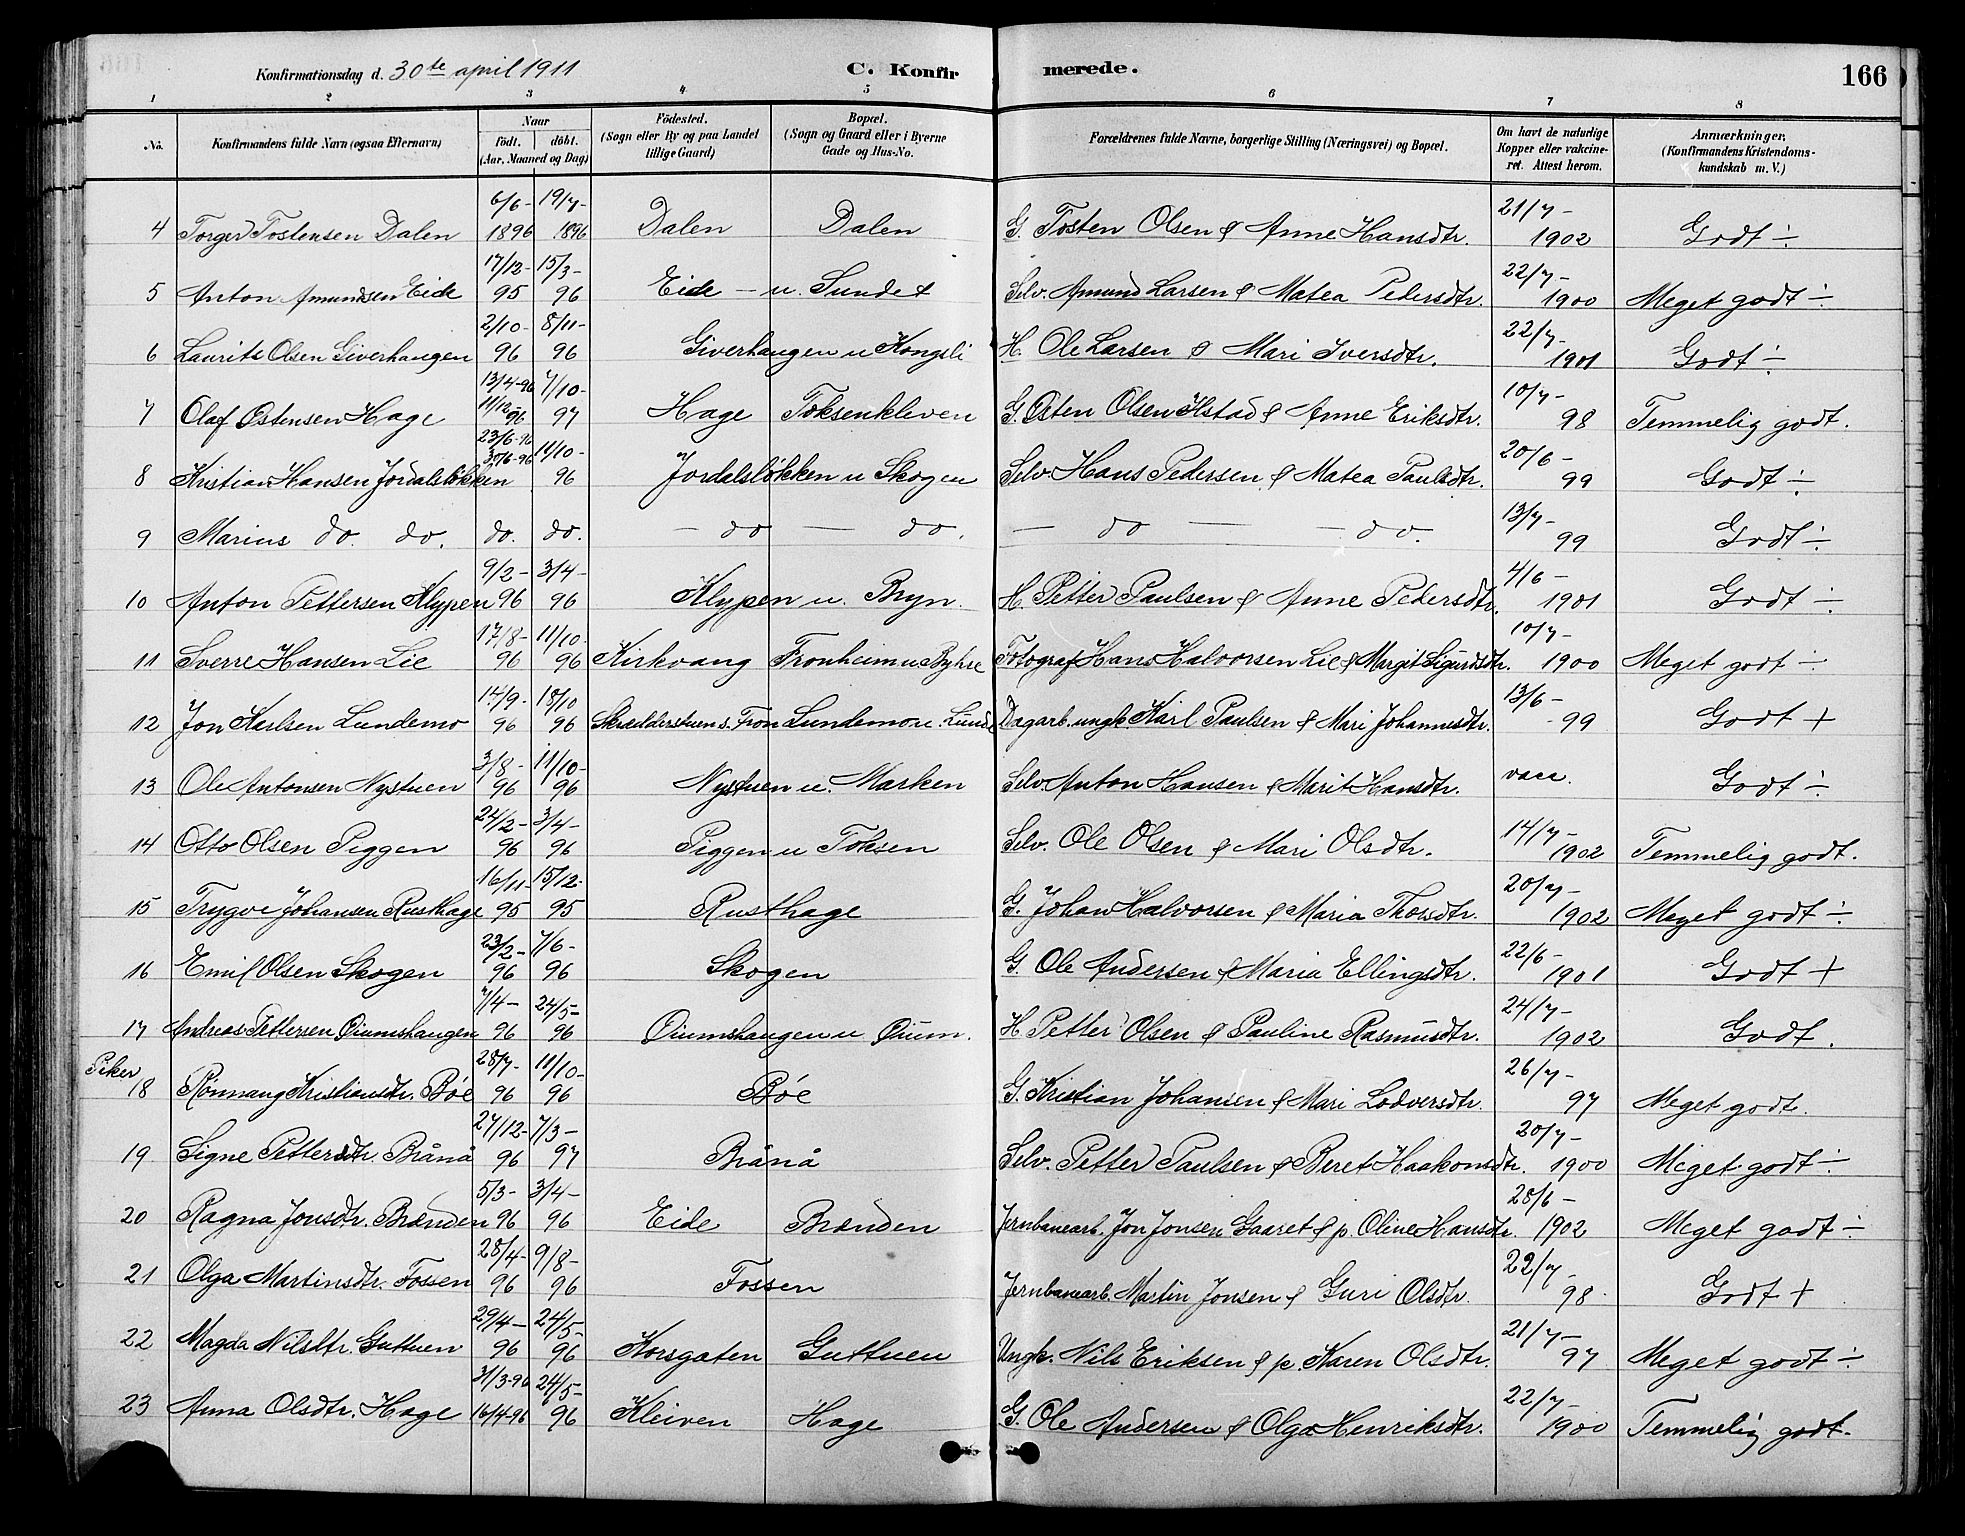 Konfirmationsdag d. 30te april 1911 C. Konfirmerede. 166
1 2 3 4 5 6 7 8
No. Konfirmandens fulde Navn (ogsaa Efternavn) Naar født. døbt. (Aar, Maaned og Dag) Fødested. (Sogn eller By og paa Landet tillige Gaard) Bopæl. (Sogn og Gaard eller i Byerne Gade og Hus-No. Forældrenes fulde Navne, borgerlige Stilling (Næringsvei) og Bopæl. Om havt de naturlige Kopper eller vakcineret. Attest herom. Anmærkninger. (Konfirmandens Kristendomskundskab m. V.)
4 Torger Tostensen Dalen 6/6-1896 19/7-1896 Dalen Dalen G. Tosten Olsen & Anne Hansdtr. 21/7-1902 Godt ÷
5 Anton Amundsen Eide 17/12-95 15/3-96 Eide - u. Sundet Selv. Amund Larsen & Matea Pedersdtr. 22/7-1900 Meget godt ÷
6 Laurits Olsen Giverhaugen 2/10-96 8/11-96 Giverhaugen u Kongsli H. Ole Larsen & Mari Iversdtr. 22/7-1901 Godt ÷
7 Olaf Østensen Hage 13/4-96 11/12 96 7/10-97 Hage Toksenkleven G. Østen Olsen Ilstad & Anne Eriksdtr. 10/7-98 Temmelig godt.
8 Kristian Hansen Jordalsløkken 23/6-96 11/10-96 Jordalsløkken u Skogen Selv Hans Pedersen & Matea Paulsdtr. 20/6-99 Godt ÷
9 Marius do. do. do. do. - do - do. - do - - do. 13/7-99 Godt ÷
10 Anton Pettersen Klypen 9/2-96 3/4-96 Klypen u. Bryn. H. Petter Paulsen & Anne Pedersdtr. 4/6-1901 Godt ÷
11 Sverre Hansen Lie 17/8-96 11/10-96 Kirkvang Fronheim u Byhre Fotograf Hans Halvorsen Lie & Margit Sigurdsdtr. 10/7-1900 Meget godt ÷
12 Jon Karlsen Lundemo 14/9-96 18/10 96 Skrædderstuen s. Fron Lundemo u. Lunde Dagarb. ungk. Karl Paulsen & Mari Johannesdtr. 13/6-99 Godt +
13 Ole Antonsen Nystuen 3/8-96 11/10-96 Nystuen u. Marken Selv Anton Hansen & Marit Hansdtr. vacc. Godt ÷
14 Otto Olsen Piggen 24/2-96 3/4-96 Piggen u Toksen Selv. Ole Olsen & Mari Olsdtr. 14/7-1902 Temmelig godt.
15 Trygve Johansen Rusthage 16/11-95 15/12-95 Rusthage G. Johan Halvorsen & Maria Thorsdtr. 20/7-1902 Meget godt ÷
16 Emil Olsen Skogen 23/2-96 7/6-96 Skogen G. Ole Andersen & Maria Ellingsdtr. 22/6-1901 Godt +
17 Andreas Pettersen Øiumshaugen 7/4-96 24/5-96 Øiumshaugen u Øium. H. Petter Olsen & Pauline Rasmusdtr. 24/7-1902 Godt.
Piker
18 Rønnaug Kristiansdtr. Bøe 28/7-96 11/10-96 Bøe G. Kristian Johansen & Mari Lodversdtr. 26/7-97 Meget godt.
19 Signe Pettersdtr Brånå 27/12-96 7/3-97 Brånå Selv. Petter Paulsen & Beret Haakonsdtr. 20/7-1900 Meget godt ÷
20 Ragna Jonsdtr. Brænden 5/3-96 3/4-96 Eide Brænden Jernbanearb. Jon Jonsen Gaaret & p. Oline Hansdtr. 28/6-1902 Meget godt ÷
21 Olga Martinsdtr. Fossen 28/4-96 9/8-96 Fossen Jernbanearb. Martin Jonsen & Guri Olsdtr. 22/7-98 Godt +
22 Magda Nilsdtr. Guttuen 29/4-96 24/5-96 Korsgaten Guttuen Ungk. Nils Eriksen & p. Karen Olsdtr. 21/7-97 Meget godt ÷
23 Anna Olsdtr. Hage 31/3-96 16/4-96 24/5-96 Kleiven Hage G. Ole Andersen & Olga Henriksdtr. 22/7-1900 Temmelig godt.